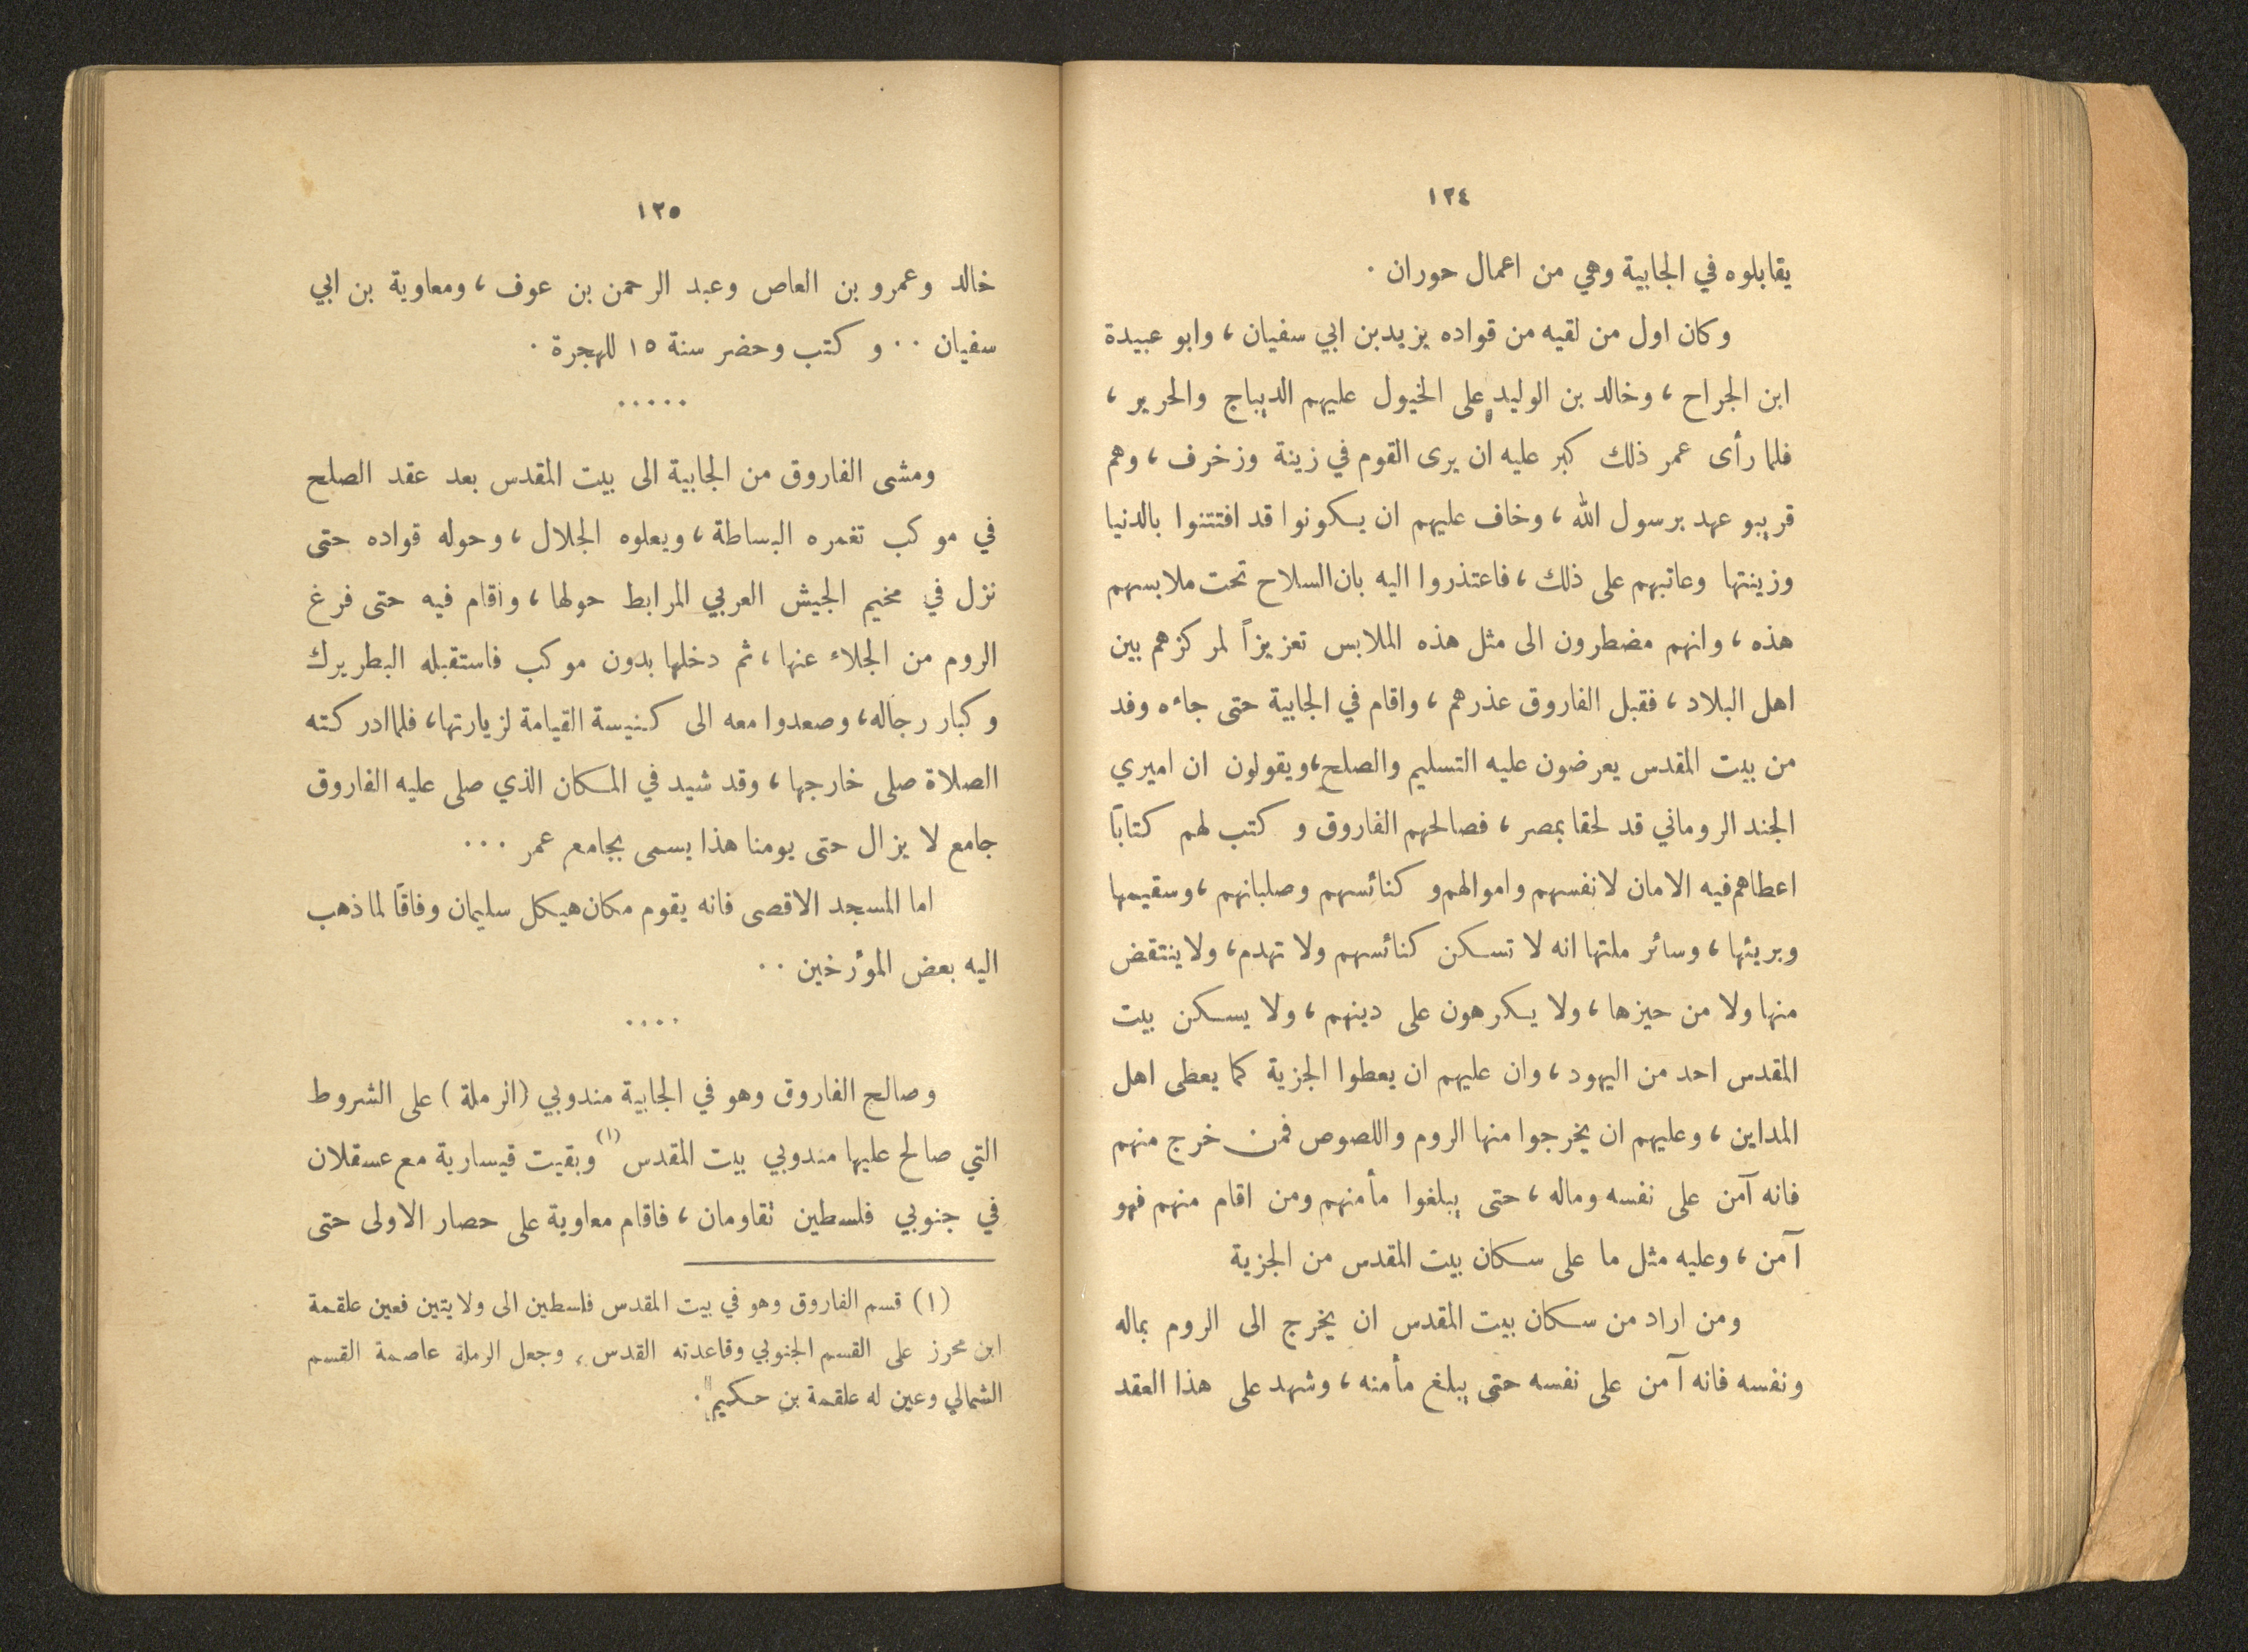 ١٢٤
يقابلوه في الجابية وهي من اعمال حوران .
وكان اول من لقيه من قواده يزيد بن ابي سفيان ، وابو عبيدة
ابن الجراح ، وخالد بن الوليد على الخيول عليهم الديباج والحرير ،
فلما رأى عمر ذلك كبر عليه ان يرى القوم في زينة وزخرف ، وهم
قريبو عهد برسول الله ، وخاف عليهم ان يكونوا قد افتتنوا بالدنيا
وزينتها وعاتبهم على ذلك ، فاعتذروا اليه بان السلاح تحت ملابسهم
هذه ، وانهم مضطرون الى مثل هذه الملابس تعزيزاً لمركزهم بين
اهل البلاد ، فقبل الفاروق عذرهم ، واقام في الجابية حتى جاءه وفد
من بيت المقدس يعرضون عليه التسليم والصلح ، ويقولون ان اميري
الجند الروماني قد لحقا بمصر ، فصالحهم الفاروق وكتب لهم كتاباً
اعطاهم فيه الامان لانفسهم واموالهم وكنائسهم وصلبانهم ، وسقيمها
وبريئها ، وسائر ملتها انه لا تسكن كنائسهم ولا تهدم ، ولا ينتقض
منها ولا من حيزها ، ولا يكرهون على دينهم ، ولا يسكن بيت
المقدس احد من اليهود ، وان عليهم ان يعطوا الجزية كما يعطى اهل
المداين ، وعليهم ان يخرجوا منها الروم واللصوص فمن خرج منهم
فانه آمن على نفسه وماله ، حتى يبلغوا مأمنهم ومن اقام منهم فهو
آمن ، وعليه مثل ما على سكان بيت المقدس من الجزية
ومن اراد من سكان بيت المقدس ان يخرج الى الروم بماله
ونفسه فانه آمن على نفسه حتى يبلغ مأمنه ، وشهد على هذا العقد
١٢٥
خالد وعمرو بن العاص وعبد الرحمن بن عوف ، ومعاوية بن ابي
سفيان .. وكتب وحضر سنة ١٥ للهجرة .
.....
ومشى الفاروق من الجابية الى بيت المقدس بعد عقد الصلح
في موكب تغمره البساطة ، ويعلوه الجلال ، وحوله قواده حتى
نزل في مخيم الجيش العربي المرابط حولها ، واقام فيه حتى فرغ
الروم من الجلاء عنها ، ثم دخلها بدون موكب فاستقبله البطريرك
وكبار رجاله ، وصعدوا معه الى كنيسة القيامة لزيارتها ، فلما ادركته
الصلاة صلى خارجها ، وقد شيد في المكان الذي صلى عليه الفاروق
جامع لا يزال حتى يومنا هذا يسمى بجامع عمر ...
اما المسجد الاقصى فانه يقوم مكان هيكل سليمان وفاقاً لما ذهب
اليه بعض المؤرخين ..
....
وصالح الفاروق وهو في الجابية مندوبي (الرملة) على الشروط
التي صالح عليها مندوبي بيت المقدس (١) وبقيت قيسارية مع عسقلان
في جنوبي فلسطين تقاومان ، فاقام معاوية على حصار الاولى حتى
(١) قسم الفاروق وهو في بيت المقدس فلسطين الى ولايتين فعين علقمة
ابن محرز على القسم الجنوبي وقاعدته القدس ، وجعل الرملة عاصمة القسم
الشمالي وعين له علقمة بن حكيم .